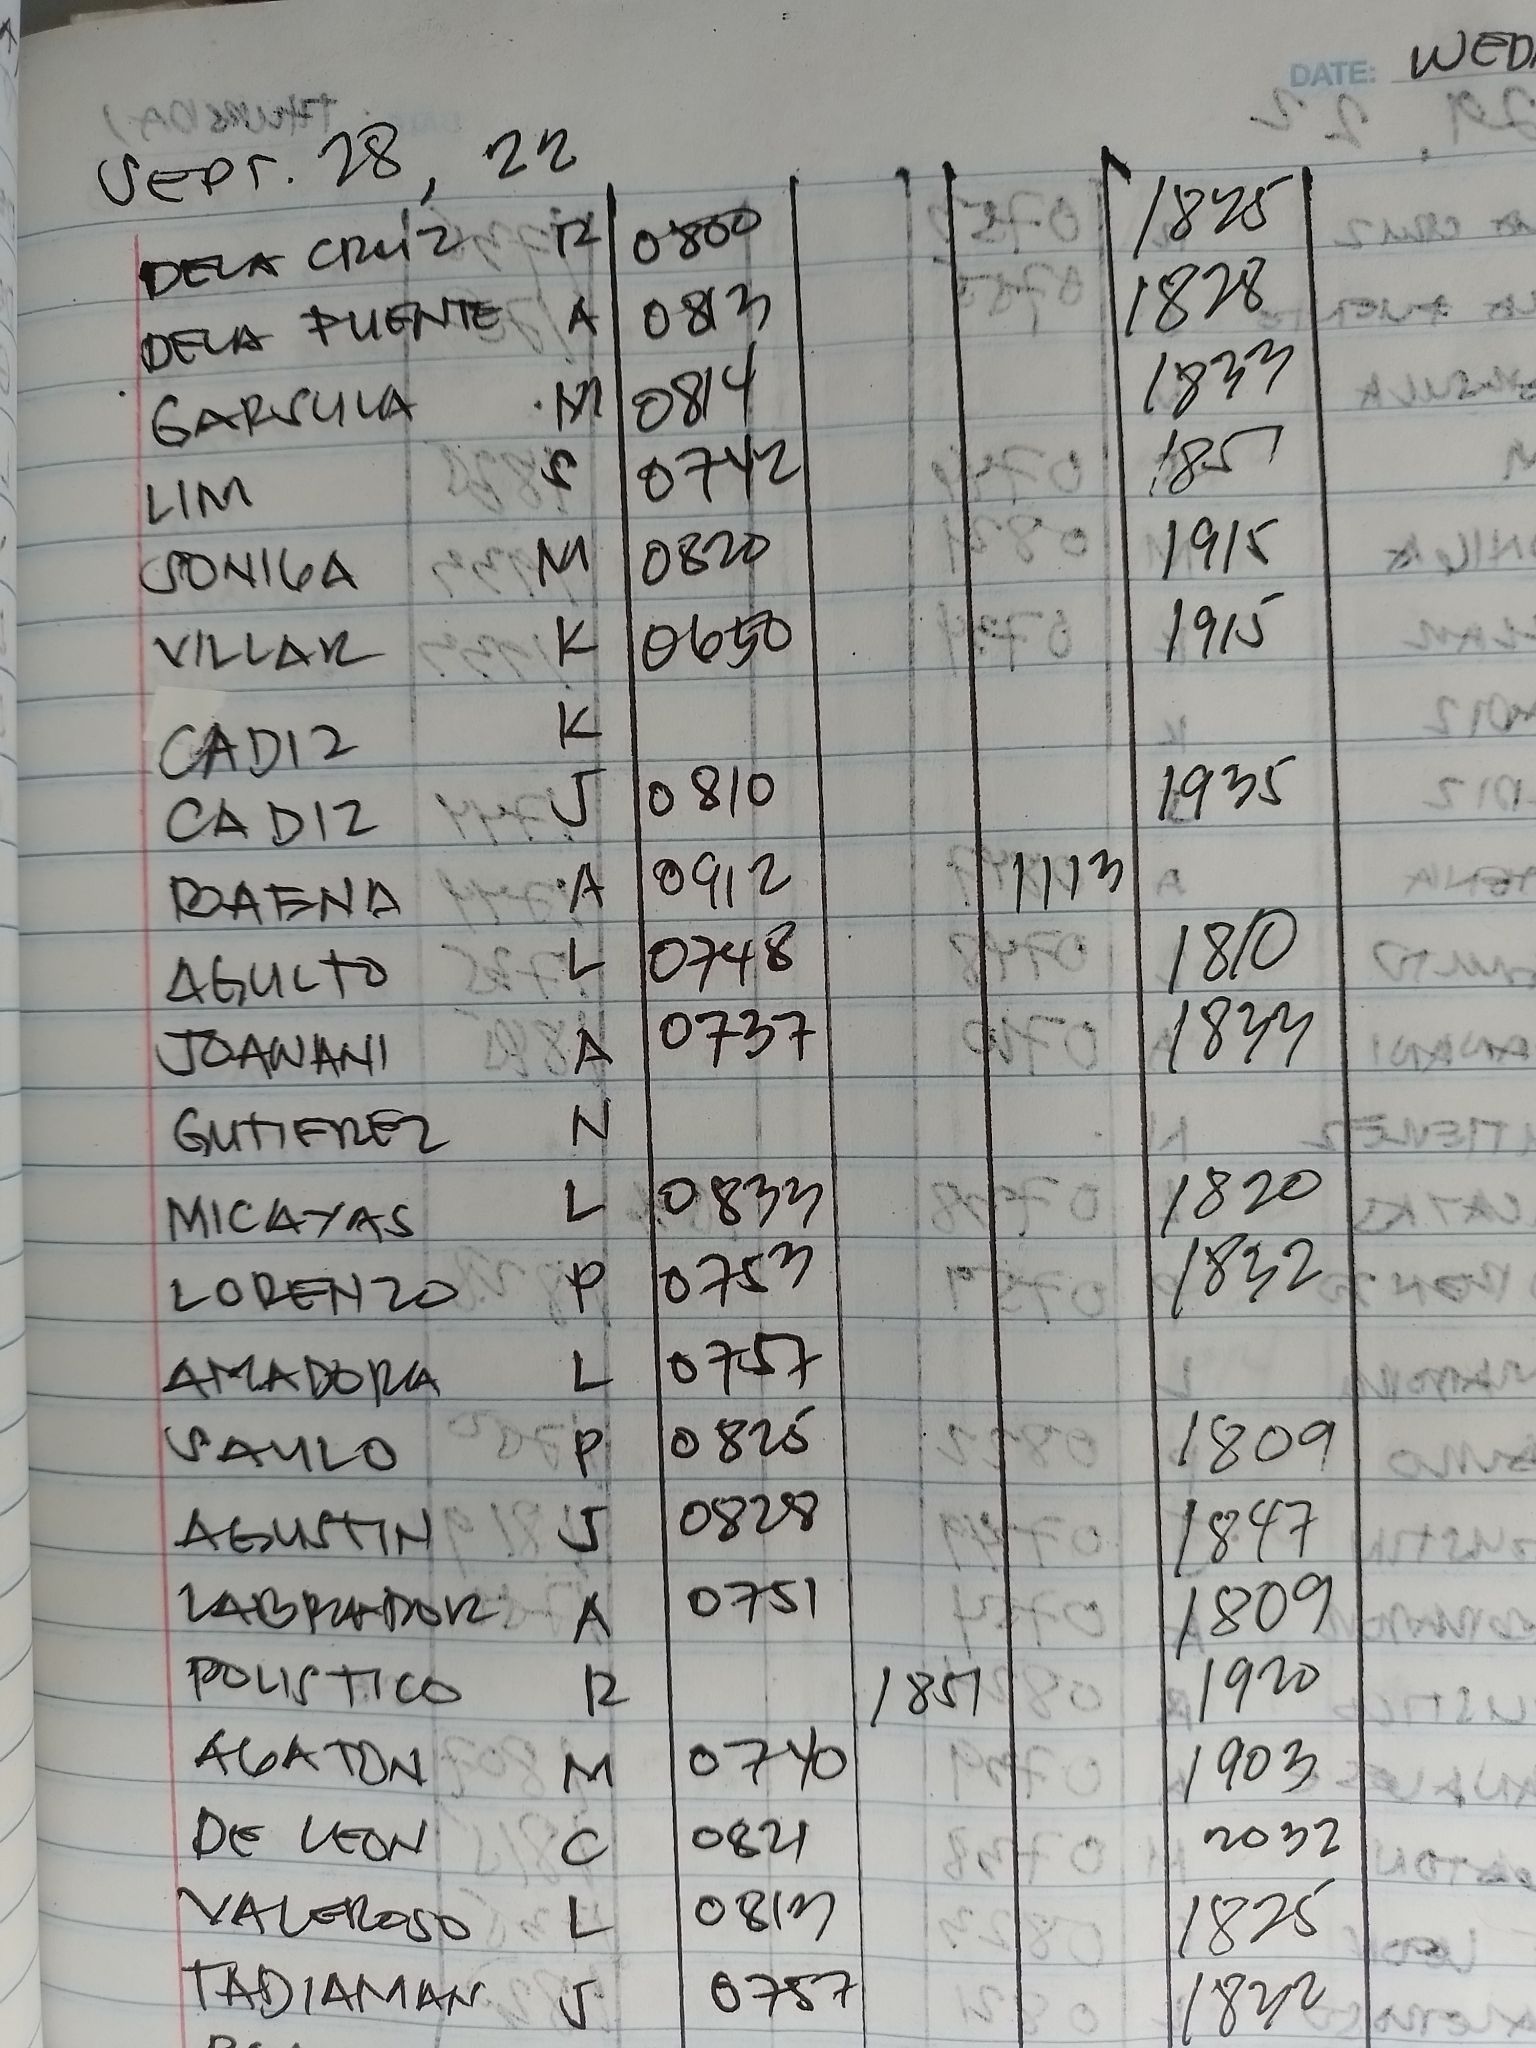 DATE: WED
SEPT. 28, 22
DELA CRUZ R 0800 1825
DELA PUENTE A 0813 1828
GARSULA M 0814 1833
LIM S 0742 1857
SONIGA M 0820 1915
VILLAR K 0650 1915
CADIZ K
CADIZ J 0810 1935
BAENA A 0912 1113
AGULTO L 0748 1810
JOANANI A 0737 1833
GUTIEREZ N
MICAYAS L 0833 1820
LORENZO P 0753 1832
AMADORA L 0757
SAULO P 0825 1809
AGUSTIN J 0828 1847
LABRADOR A 0751 1809
POLISTICO R 1857 1920
AGATON M 0740 1903
DE LEON C 0821 2032
VALEROSO L 0813 1825
TADIAMAN J 0757 1832